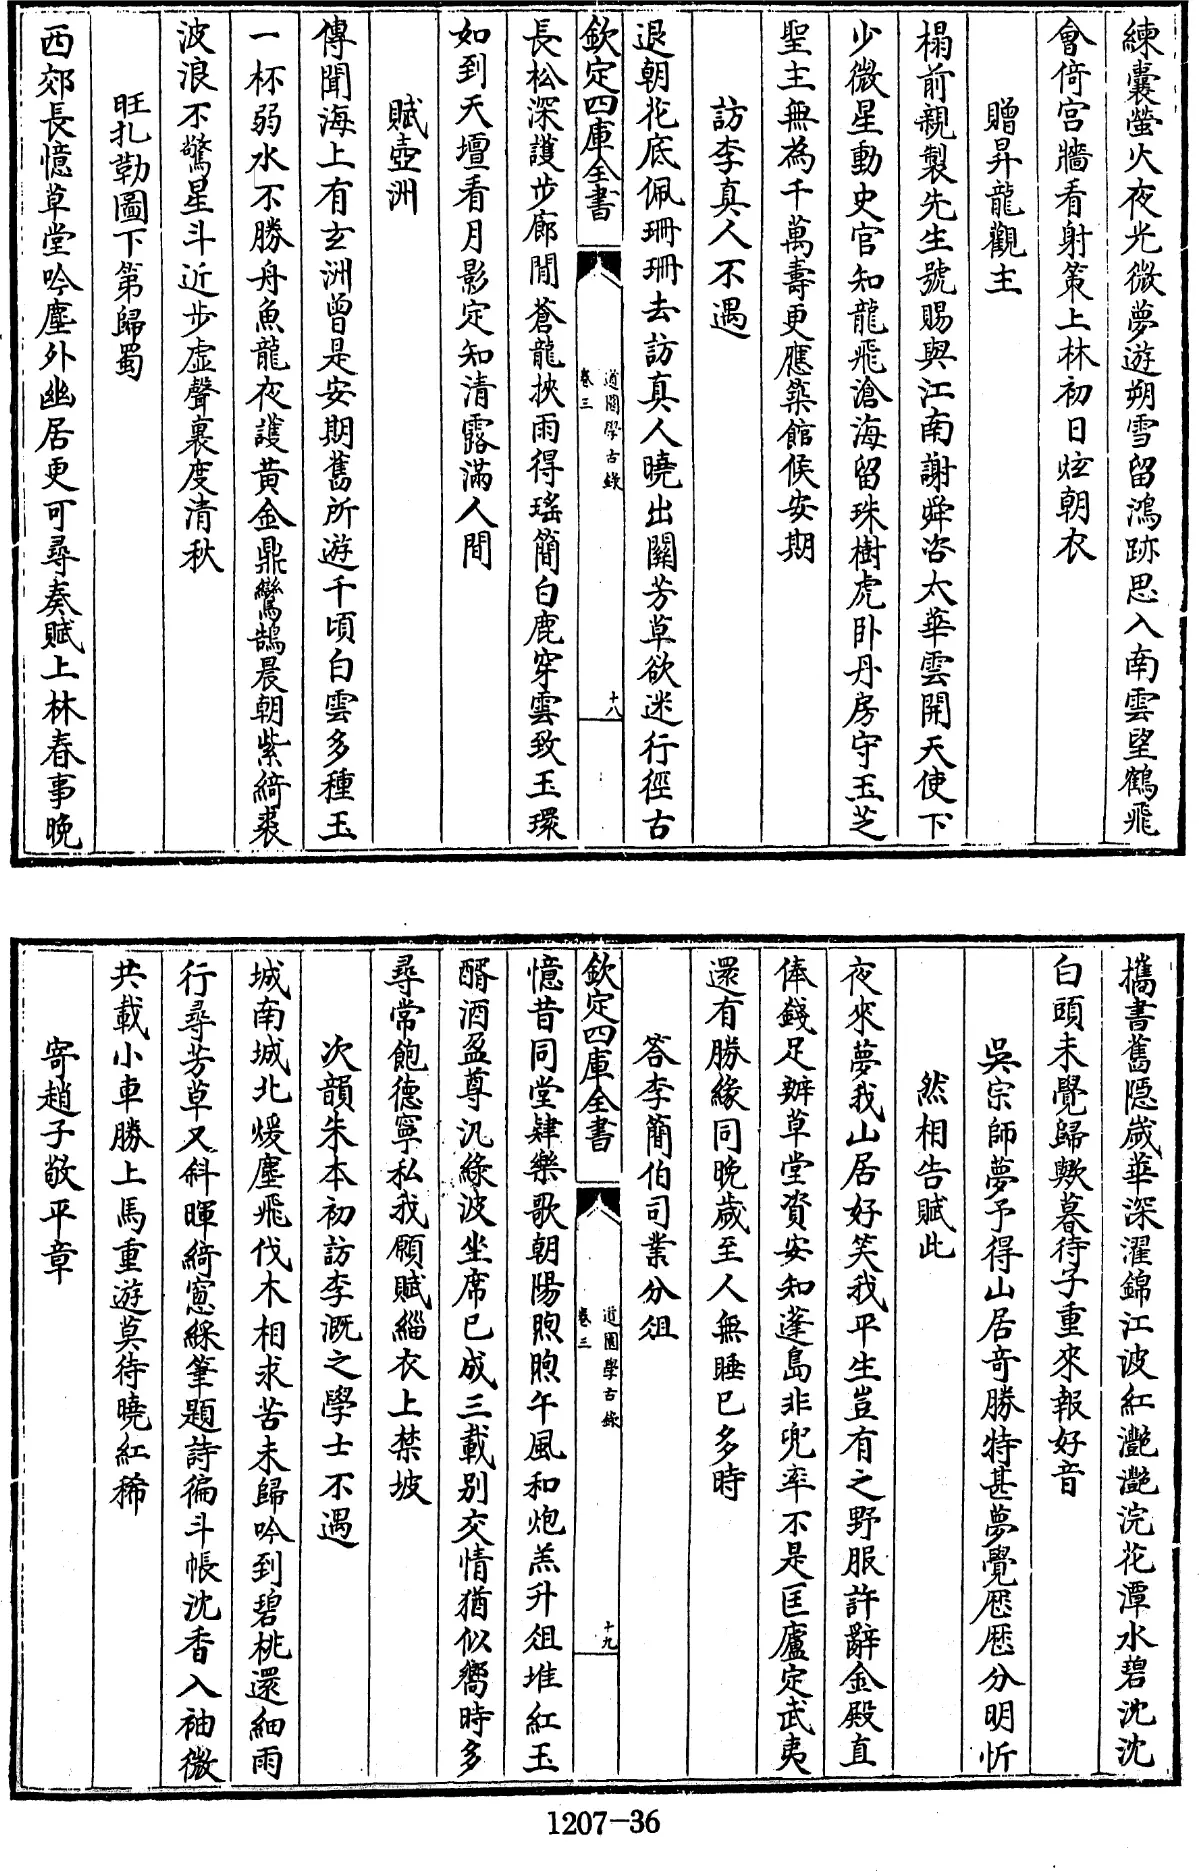 練囊螢火夜光微夢遊朔雪留鴻跡思入南雲望鶴飛
會倚宫牆看射策上林初日炫朝衣
贈昇龍觀主
榻前親製先生號賜與江南謝舜咨太華雲開天使下
少微星動史官知龍飛滄海留珠樹虎卧丹房守玉芝
聖主無為千萬壽更應築館候安期
訪李真人不遇
退朝花底佩珊珊去訪真人曉出關芳草欲迷行徑古
欽定四庫全書
道園學古錄
卷三
十八
長松深護步廊閒蒼龍挾雨得瑤簡白鹿穿雲致玉環
如到天壇看月影定知清露滿人間
賦壺洲
傳聞海上有玄洲曾是安期舊所遊千頃白雲多種玉
一杯弱水不勝舟魚龍夜護黄金鼎鸞鵠晨朝紫綺裘
波浪不驚星斗近步虚聲裏度清秋
旺扎勒圖下第歸蜀
西郊長憶草堂吟塵外幽居更可尋奏賦上林春事晚
攜書舊隠歲華深濯錦江波紅灧灧浣花潭水碧沈沈
白頭未覺歸歟暮待子重來報好音
吳宗師夢予得山居奇勝特甚夢覺歴歴分明忻
然相告賦此
夜來夢我山居好笑我平生豈有之野服許辭金殿直
俸錢足辦草堂資安知蓬島非兜率不是匡廬定武夷
還有勝緣同晚歲至人無睡已多時
答李簡伯司業分俎
憶昔同堂肄樂歌朝陽煦煦午風和炮羔升俎堆紅玉
欽定四庫全書
道園學古錄
卷三
十九
醑酒盈尊汎緑波坐席已成三載别交情猶似嚮時多
尋常飽德寧私我願賦緇衣上禁坡
次韻朱本初訪李溉之學士不遇
城南城北煖塵飛伐木相求苦未歸吟到碧桃還細雨
行尋芳草又斜暉綺窓綵筆題詩徧斗帳沈香入袖微
共載小車勝上馬重遊莫待曉紅稀
寄趙子敬平章
1207-36